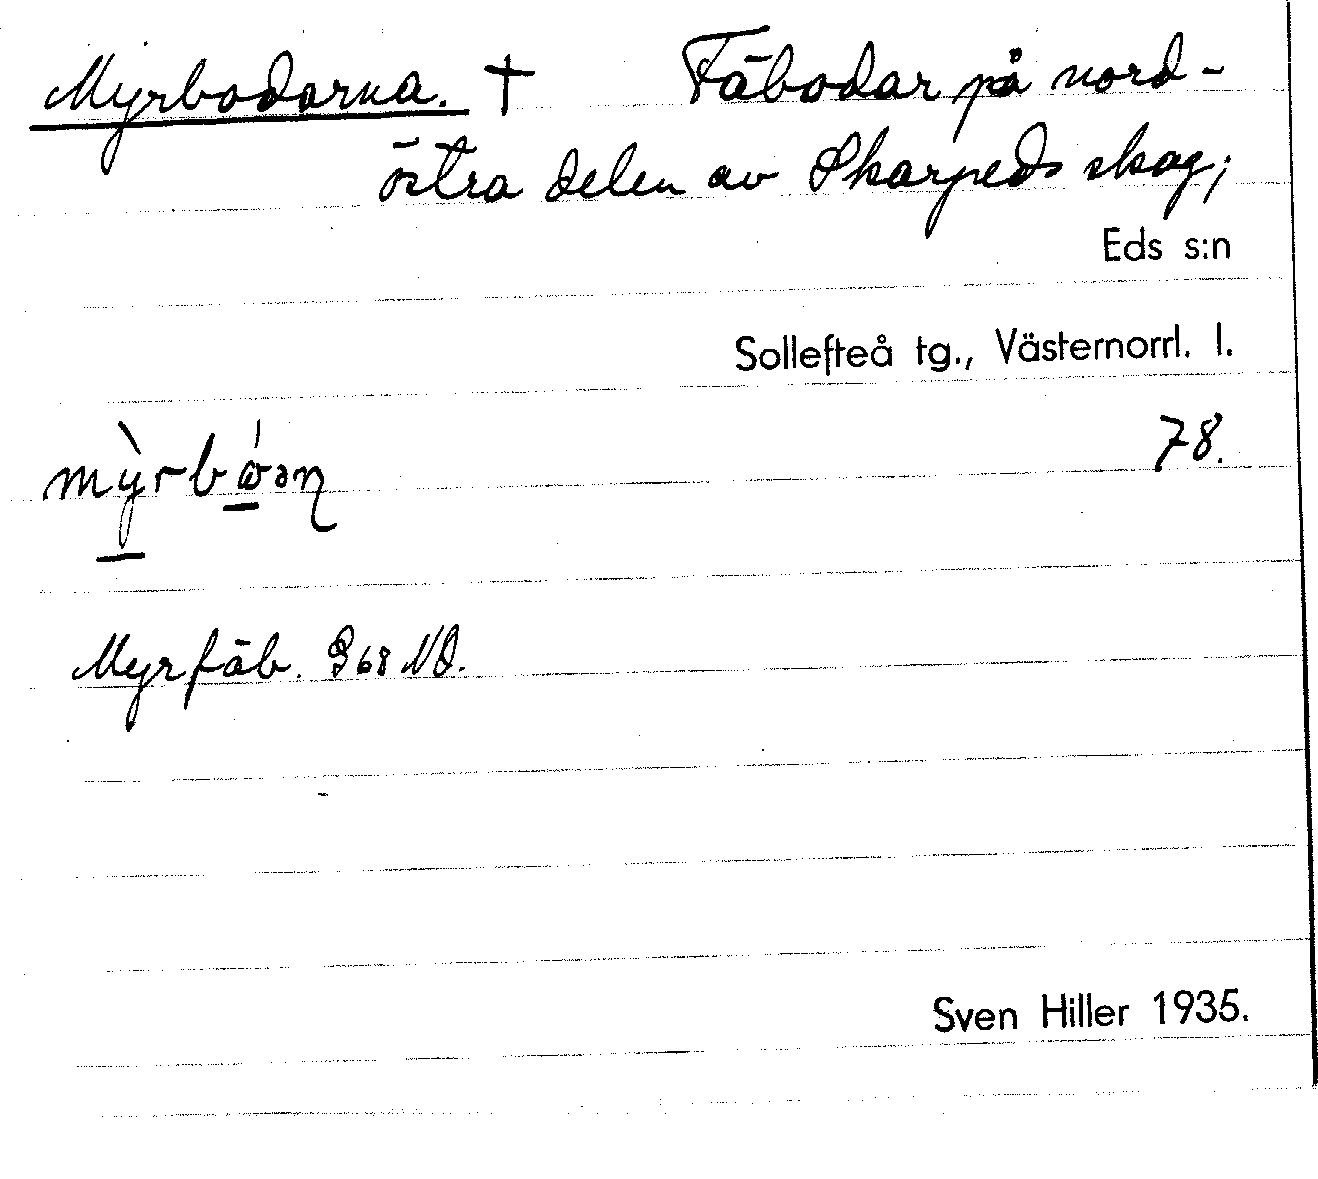 Myrbodarna. † Fäbodar på nord-
östra delen av Skarpeds skog;
Eds s:n
Sollefteå tg., Västernorrl. l.
78.
Myrfäb. 68 NO.
Sven Hiller 1935.